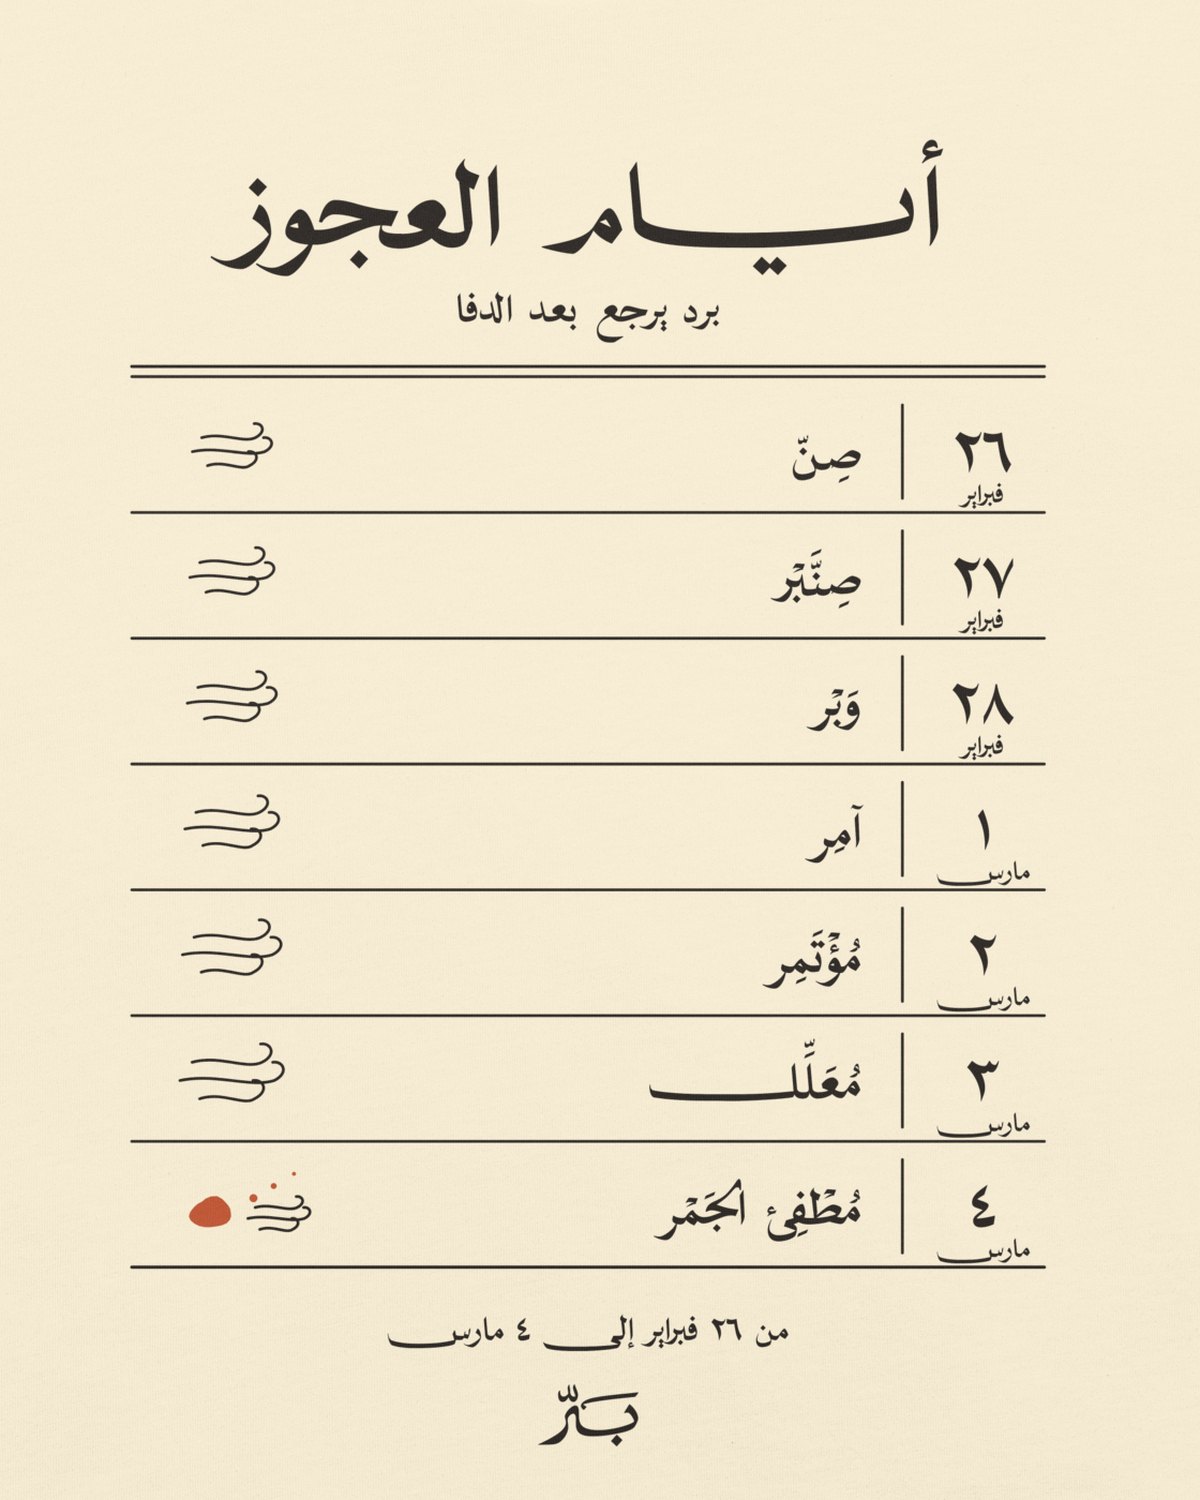 أيـــام العجوز
برد يرجع بعد الدفا
٢٦ فبراير صِنّ
٢٧ فبراير صِنَّبْر
٢٨ فبراير وَبْر
١ مارس آمِر
٢ مارس مُؤْتَمِر
٣ مارس مُعَلِّل
٤ مارس مُطْفِئ الجَمْر
من ٢٦ فبراير إلى ٤ مارس